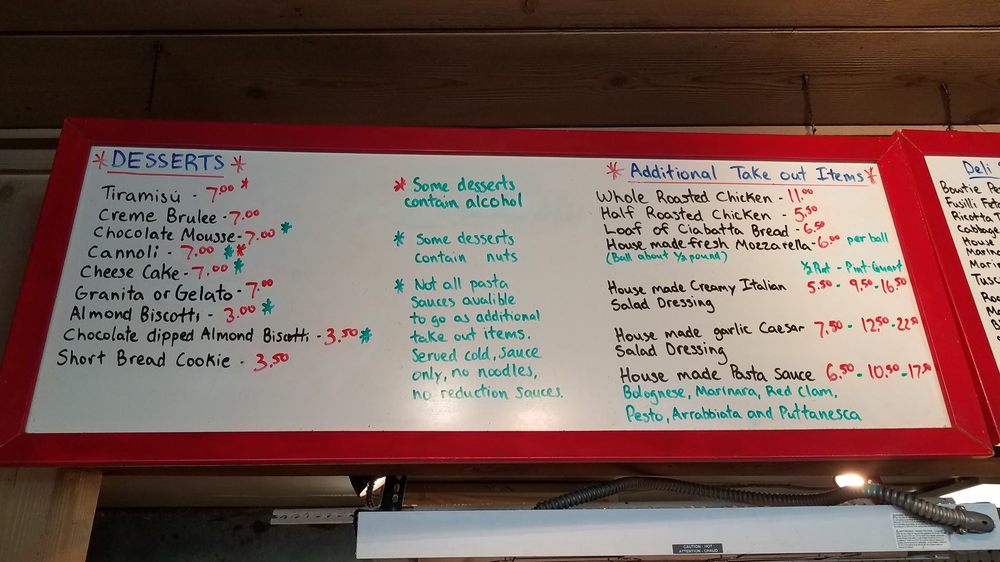 *DESSERTS*
Tiramisú - 7.00 *
Creme Brulee - 7.00
Chocolate Mousse - 7.00 *
Cannoli - 7.00 **
Cheese Cake - 7.00 *
Granita or Gelato - 7.00
Almond Biscotti - 3.00 *
Chocolate dipped Almond Biscotti - 3.50 *
Short Bread Cookie - 3.50
* Some desserts
contain alcohol
* Some desserts
contain nuts
* Not all pasta
Sauces avalible
to go as additional
take out items.
Served cold, sauce
only, no noodles,
no reduction sauces.
*Additional Take out Items*
Whole Roasted Chicken - 11.00
Half Roasted Chicken - 5.50
Loaf of Ciabatta Bread - 6.50
House made fresh Mozzarella - 6.00 per ball
(Ball about 1/2 pound)
1/2 Pint - Pint - Quart
House made Creamy Italian 5.50 - 9.50 - 16.50
Salad Dressing
House made garlic Caesar 7.50 - 12.50 - 22.50
Salad Dressing
House made Pasta Sauce 6.50 - 10.50 - 17.50
Bolognese, Marinara, Red Clam,
Pesto, Arrabbiata and Puttanesca
Deli
Bowtie Pe
Fusilli Fet
Ricotta
Cabbage
House
Marin
Marin
Tusc
Ro
Ma
CAUTION - HOT
ATTENTION - CHAUD